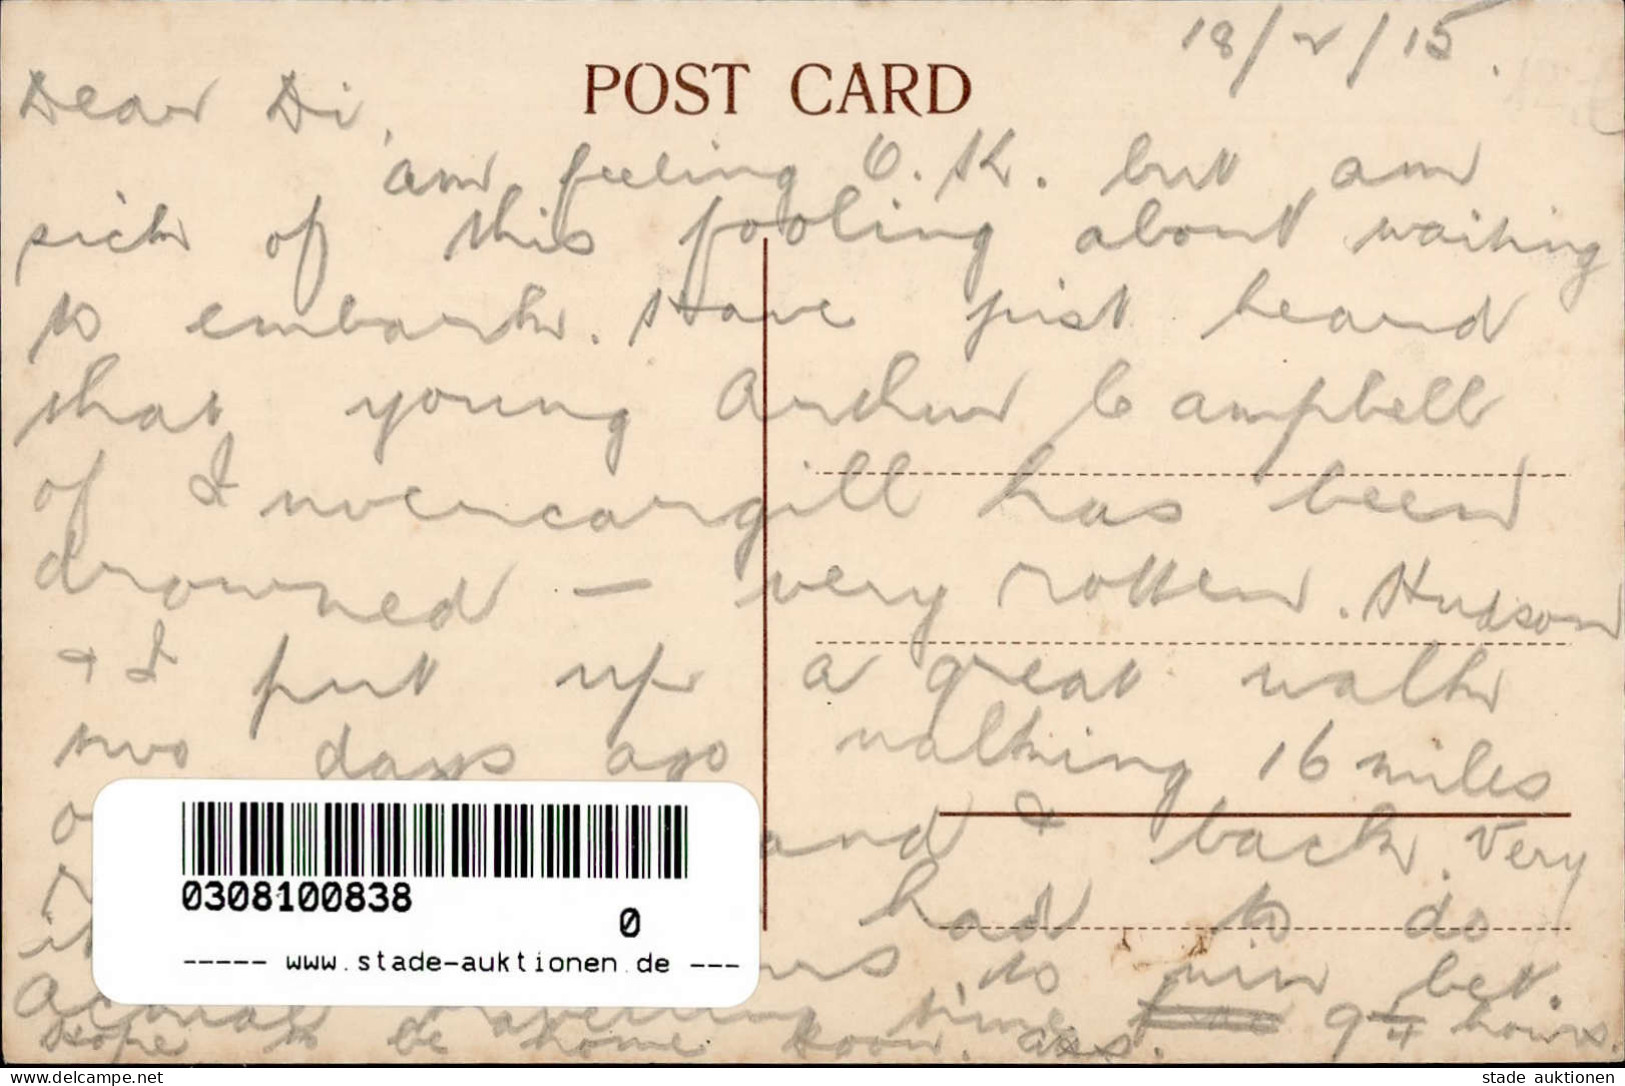 18/2/15.
POST CARD
Dear Di,
am feeling O.K. but am
sick of this fooling about waiting
to embark. Have just heard
that young Arthur Campbell
of Invercargill has been
drowned — very rotten. Hudson
& I put up a great walk
two days ago walking 16 miles
and & back. Very
had to do
to win bet.
Actual travelling time 9¼ hours.
Hope to be home soon.
0308100838
0
----- www.stade-auktionen.de ---
your date stamps
stade auktionen